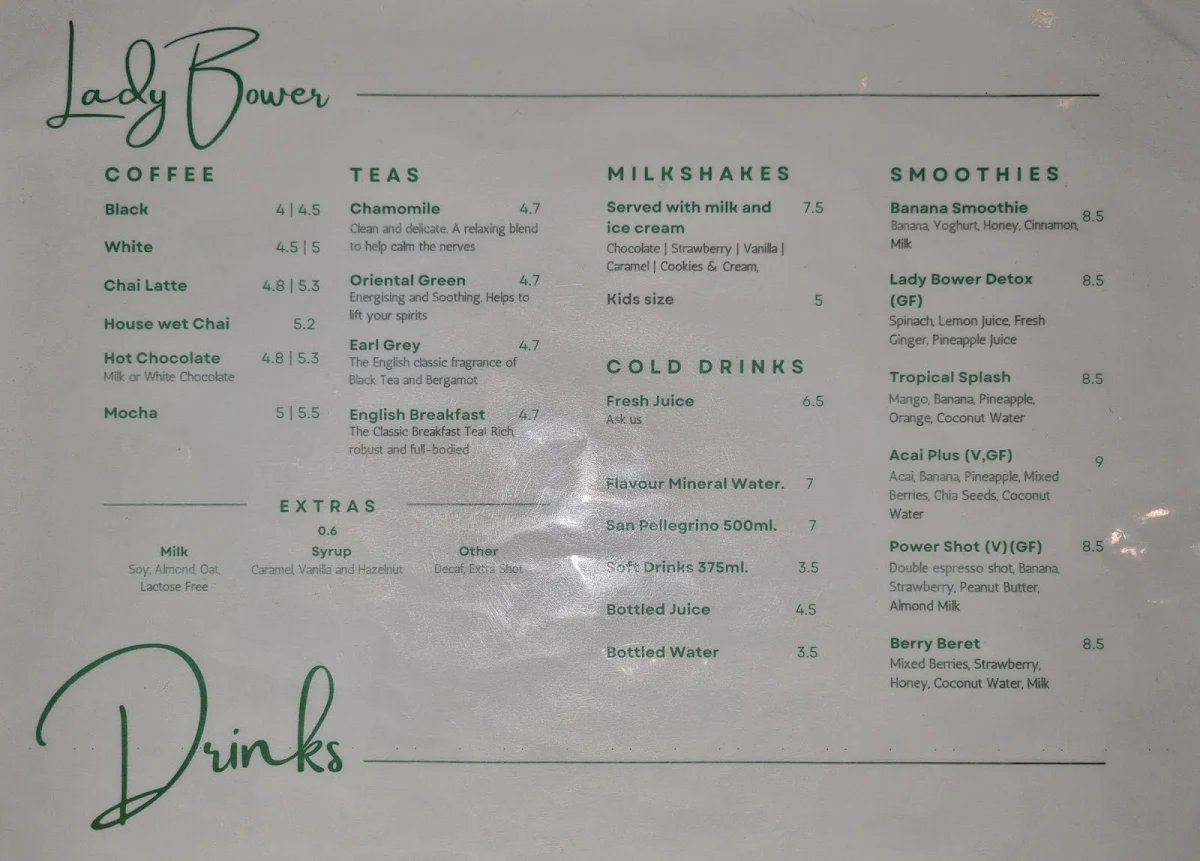 Lady Bower
COFFEE
Black 4 | 4.5
White 4.5 | 5
Chai Latte 4.8 | 5.3
House wet Chai 5.2
Hot Chocolate 4.8 | 5.3
Milk or White Chocolate
Mocha 5 | 5.5
TEAS
Chamomile 4.7
Clean and delicate. A relaxing blend
to help calm the nerves
Oriental Green 4.7
Energising and Soothing. Helps to
lift your spirits
Earl Grey 4.7
The English classic fragrance of
Black Tea and Bergamot
English Breakfast 4.7
The Classic Breakfast Tea! Rich,
robust and full-bodied
EXTRAS
0.6
Milk
Soy, Almond, Oat,
Lactose Free
Syrup
Caramel, Vanilla and Hazelnut
Other
Decaf, Extra Shot
MILKSHAKES
Served with milk and 7.5
ice cream
Chocolate | Strawberry | Vanilla |
Caramel | Cookies & Cream,
Kids size 5
COLD DRINKS
Fresh Juice 6.5
Ask us
Flavour Mineral Water. 7
San Pellegrino 500ml. 7
Soft Drinks 375ml. 3.5
Bottled Juice 4.5
Bottled Water 3.5
SMOOTHIES
Banana Smoothie 8.5
Banana, Yoghurt, Honey, Cinnamon,
Milk
Lady Bower Detox 8.5
(GF)
Spinach, Lemon Juice, Fresh
Ginger, Pineapple Juice
Tropical Splash 8.5
Mango, Banana, Pineapple,
Orange, Coconut Water
Acai Plus (V,GF) 9
Acai, Banana, Pineapple, Mixed
Berries, Chia Seeds, Coconut
Water
Power Shot (V)(GF) 8.5
Double espresso shot, Banana,
Strawberry, Peanut Butter,
Almond Milk
Berry Beret 8.5
Mixed Berries, Strawberry,
Honey, Coconut Water, Milk
Drinks